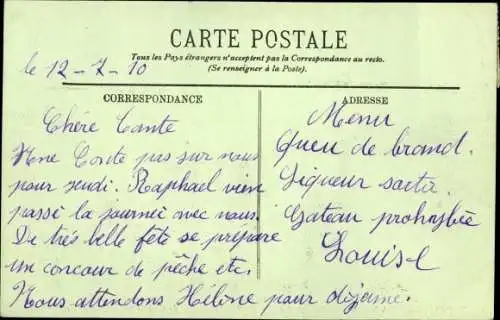 CARTE POSTALE
Tous les Pays étrangers n'acceptent pas la Correspondance au recto.
(Se renseigner à la Poste).
le 12-7-10
CORRESPONDANCE
Chère Tante
pas sur nous
pour jeudi. Raphael vien
passé la journeé avec nous.
De trés belle fête se prépare
un concour de pêche etc.
Nous attendons Hélène pour déjeuné.
ADRESSE
Menu
de brand.
Liqueur
Gateau
Louise